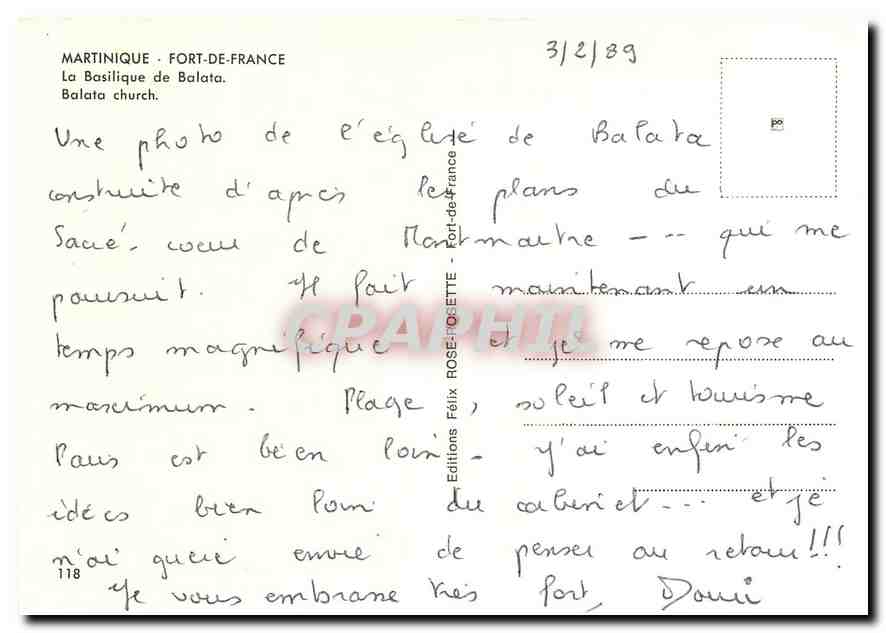 MARTINIQUE · FORT-DE-FRANCE
La Basilique de Balata.
Balata church.
3/2/89
Une photo de l'église de Balata
construite d'après les plans du
Sacré-coeur de Montmartre --- qui me
poursuit. Il fait maintenant un
temps magnifique et je me repose au
maximum. Plage, soleil et tourisme
Paris est bien loin - j'ai enfin les
idées bien loin du cabinet --- et je
n'ai guère envie de penser au retour!!!
Je vous embrasse très fort,
Editions Félix ROSE-ROSETTE - Fort-de-France
118
CPAPHIL